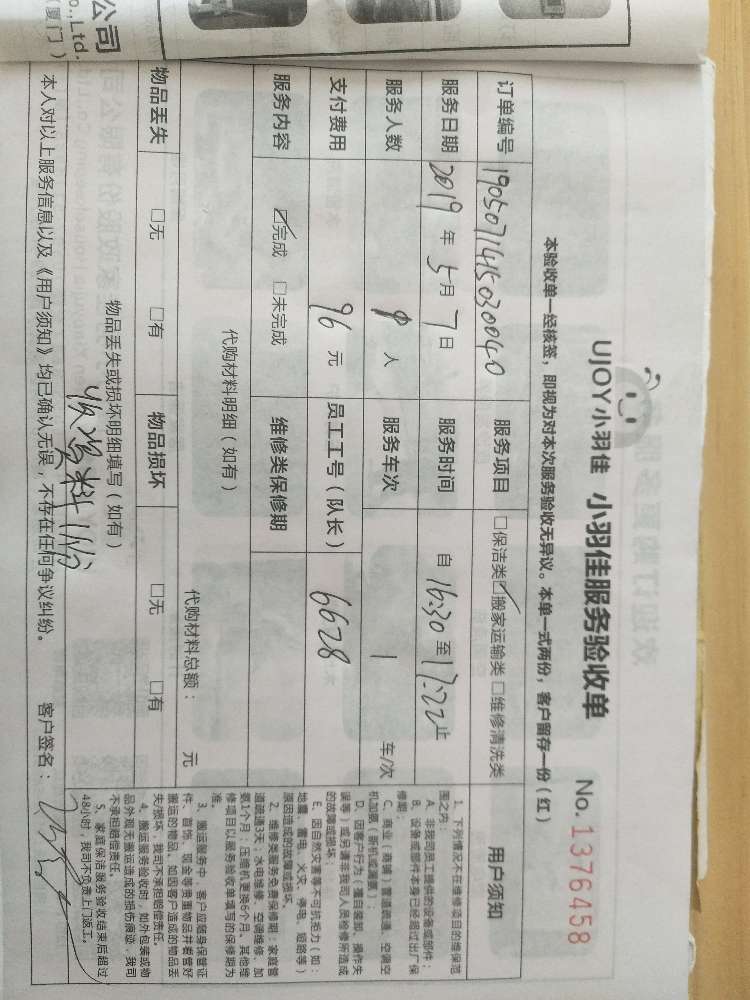 公司
o.,Ltd.
(厦门)
UJOY小羽佳 小羽佳服务验收单
No. 1376458
本验收单一经核签，即视为对本次服务验收无异议。本单一式两份，客户留存一份（红）
订单编号 190507141503004 0 服务项目 □保洁类 ☑搬家运输类 □维修清洗类
服务日期 2019 年 5 月 7 日 服务时间 自 16:30 至 17:22 止
服务人数 人 服务车次 1 车/次
支付费用 96 元 员工工号（队长） 6628
服务内容 ☑完成 □未完成 维修类保修期
代购材料明细（如有）
代购材料总额： 元
物品丢失 □无 □有 物品损坏 □无 □有
物品丢失或损坏明细填写（如有）
本人对以上服务信息以及《用户须知》均已确认无误，不存在任何争议纠纷。 客户签名：
用户须知
1、下列情况不在维修项目的维保范
围之内：
A、非我司员工提供的设备或部件；
B、设备或部件本身已经超过出厂保
修期；
C、商业（商铺）管道疏通、空调空
机加氟（新机或漏氟）；
D、因客户行为（擅自装卸、操作失
误等）或另请非我司人员检修所造成
的故障或损坏；
E、因自然灾害等不可抗拒力（如：
地震、雷电、火灾、停电、短路等）
原因造成的故障或损坏。
2、维修类服务免费保修期：家庭管
道疏通3天，水电维修、空调维修、加
氨1个月，压缩机更换6个月，其他维
修项目以服务验收单填写的保修期为
准。
3、搬运服务中，客户应随身保管证
件、首饰、现金等贵重物品并看管好
搬运的物品。如因客户造成的物品丢
失/损坏，我司不承担赔偿责任。
4、搬运服务验收时，如外包装或物
品外观无搬运造成的损伤痕迹，我司
不承担赔偿责任。
5、家庭保洁服务验收结束后超过
48小时，我司不负责上门返工。